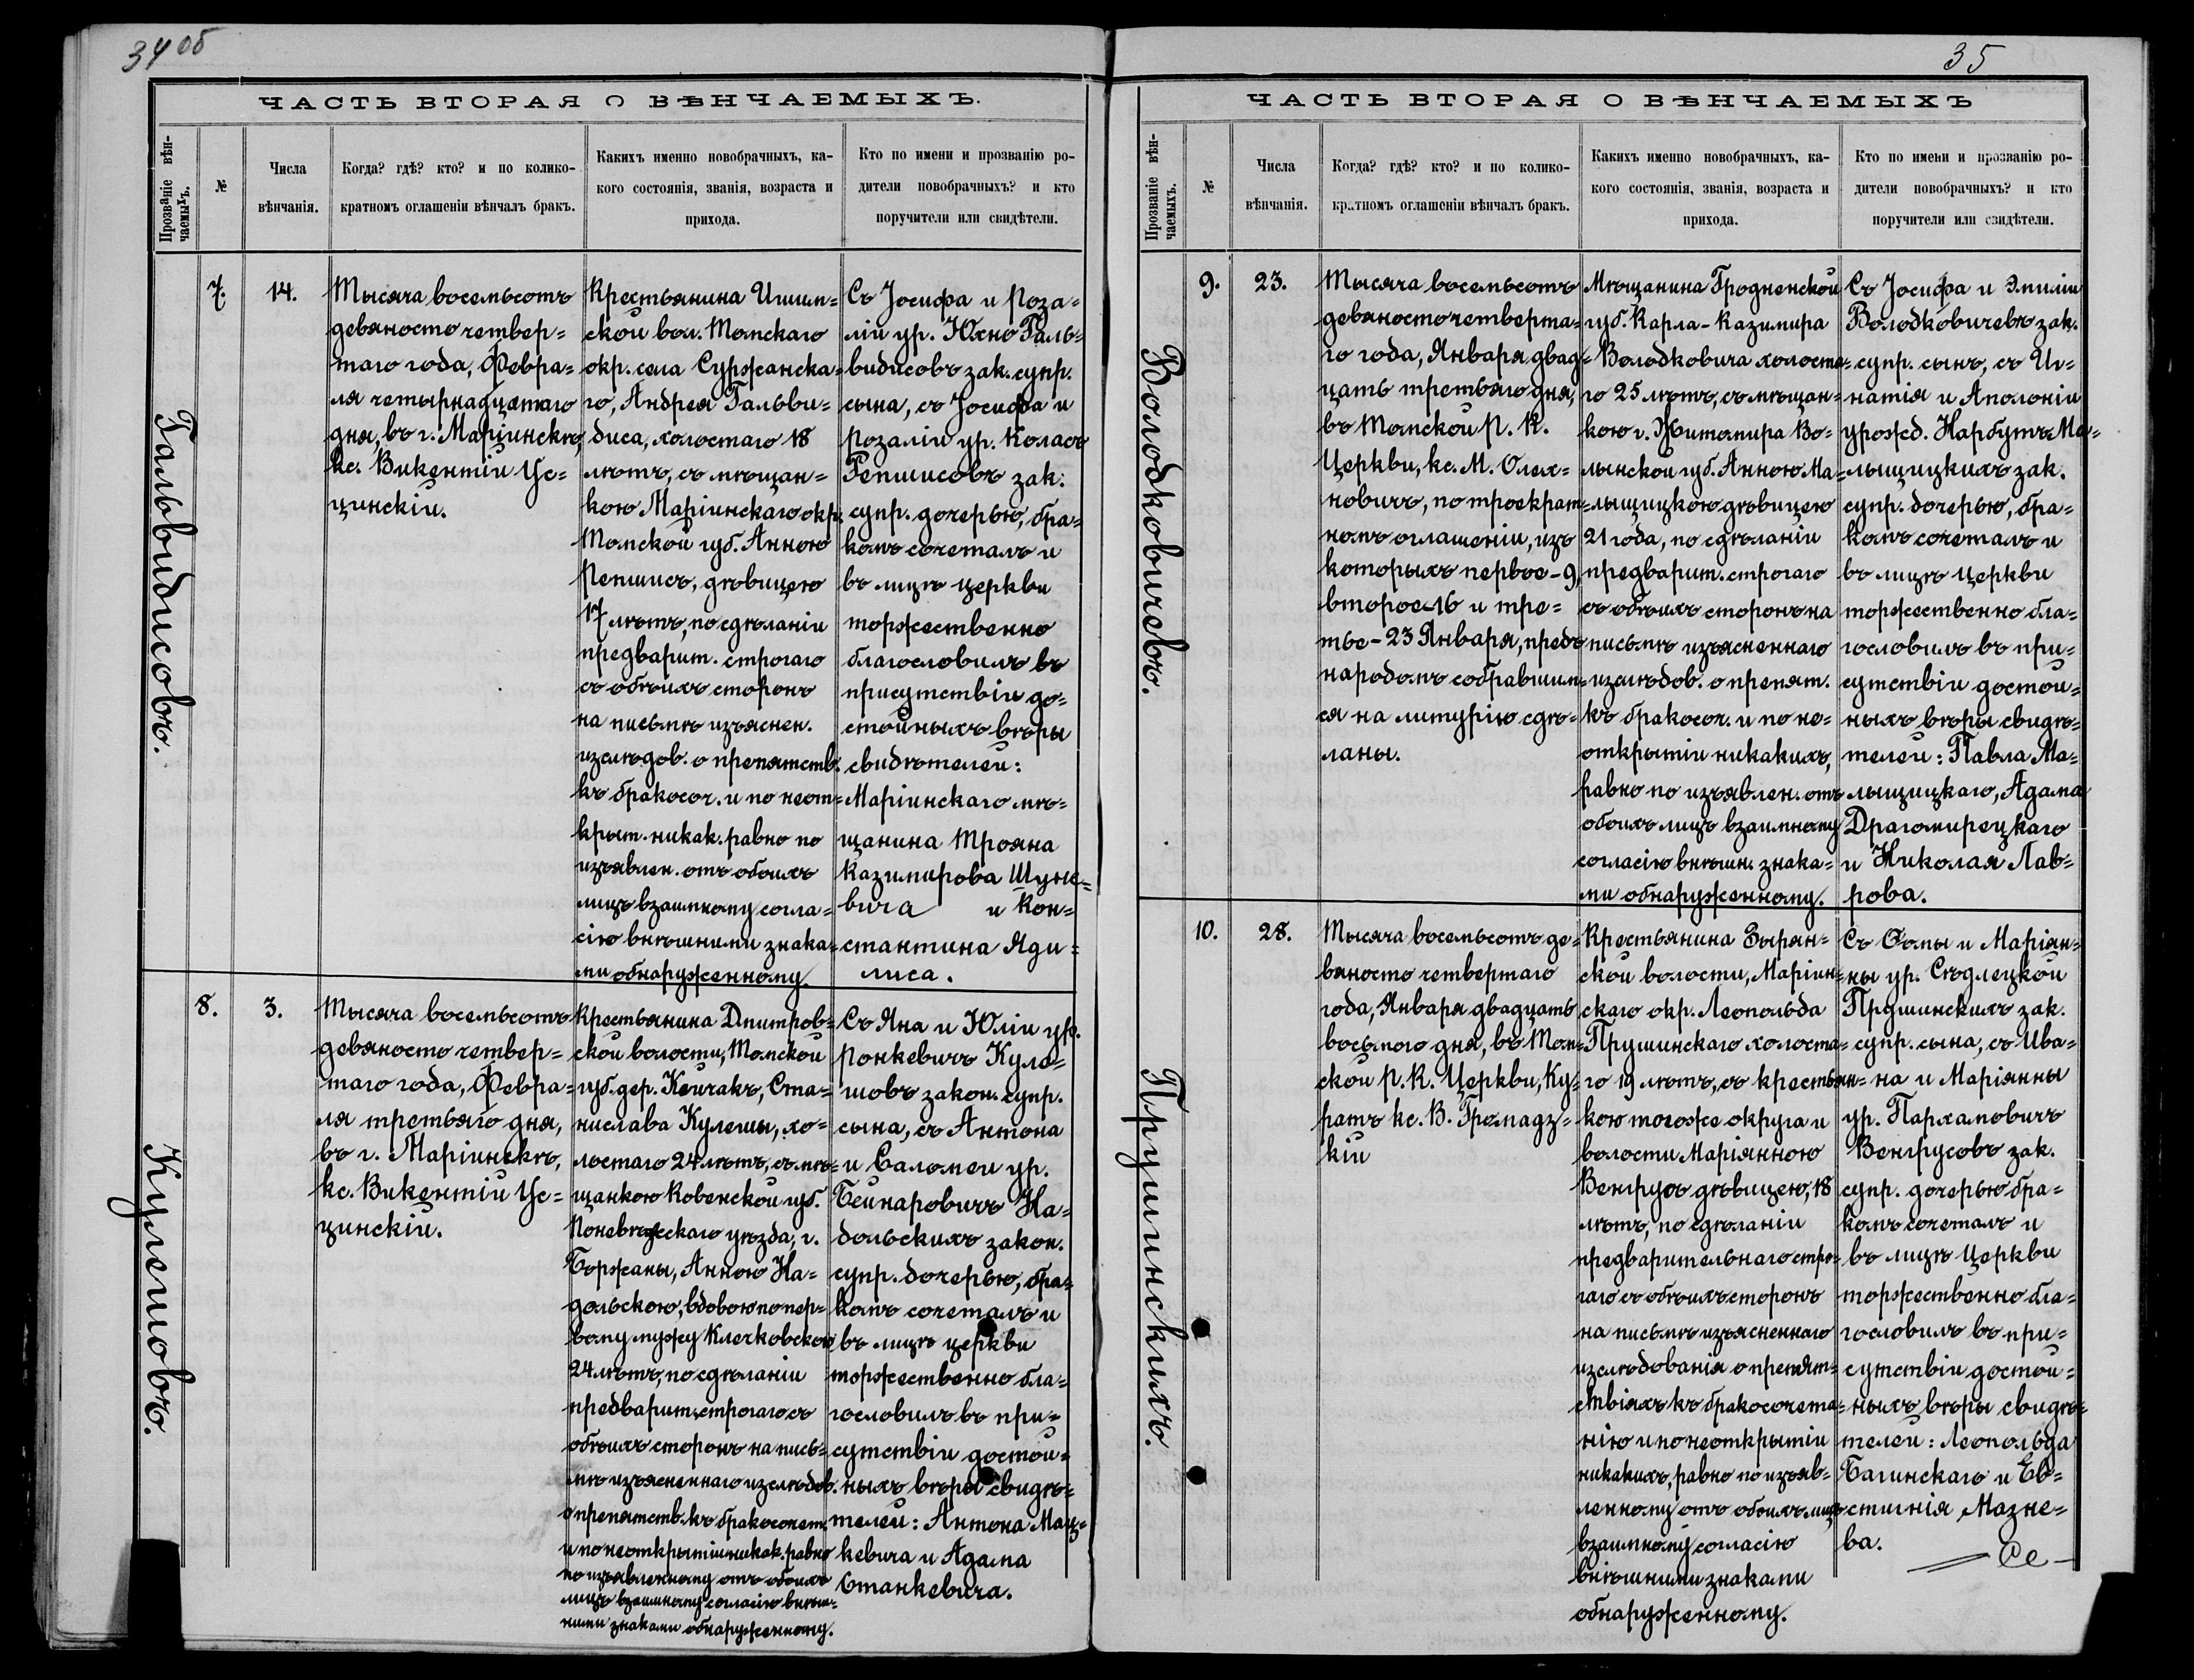 34 об
ЧАСТЬ ВТОРАЯ О ВѢНЧАЕМЫХЪ.
Прозваніе вѣн-
чаемыхъ.
№
Числа
вѣнчанія.
Когда? гдѣ? кто? и по колико-
кратномъ оглашеніи вѣнчалъ бракъ.
Какихъ именно новобрачныхъ, ка-
кого состоянія, званія, возраста и
прихода.
Кто по имени и прозванію ро-
дители новобрачныхъ? и кто
поручители или свидѣтели.
Гальвидисовъ.
7.
14.
Тысяча восемьсотъ
девяносто четвер=
таго года, Февра=
ля четырнадцатаго
дня, въ г. Маріинскѣ,
кс. Викентій Це=
цинскій.
Крестьянина Ишим=
ской вол. Томскаго
окр. села Суржанска=
го, Андрея Гальви=
диса, холостаго 18
лѣтъ, съ мѣщан=
кою Маріинскаго окр.
Томской губ. Анною
Репшисъ, дѣвицею
17 лѣтъ, по сдѣланіи
предварит. строгаго
съ обѣихъ сторонъ
на письмѣ изъяснен.
изслѣдов. о препятств.
къ бракосоч. и по неот=
крыт. никак. равно по
изъявлен. отъ обоихъ
лицъ взаимному согла=
сію внѣшними знака=
ми обнаруженному.
Съ Іосифа и Роза=
ліи ур. Юхно Галь=
видисовъ зак. супр.
сына, съ Іосифа и
Розаліи ур. Коласъ
Репшисовъ зак.
супр. дочерью, бра=
комъ сочеталъ и
въ лицѣ церкви
торжественно
благословилъ въ
присутствіи до=
стойныхъ вѣры
свидѣтелей:
Маріинскаго мѣ=
щанина Трояна
Казимирова Шуке=
вича и Кон=
стантина Яди=
лиса.
Кулешовъ.
8.
3.
Тысяча восемьсотъ
девяносто четвер=
таго года, Февра=
ля третьяго дня,
въ г. Маріинскѣ,
кс. Викентій Це=
цинскій.
Крестьянина Дмитров=
ской волости, Томской
губ. дер. Кейчакъ, Ста=
нислава Кулеши, хо=
лостаго 24 лѣтъ, съ мѣ=
щанкою Ковенской губ.
Поневѣжскаго уѣзда, г.
Биржаны, Анною На=
дольскою, вдовою по пер=
вому мужу Клечковскою
24 лѣтъ, по сдѣланіи
предварит. строгаго съ
обѣихъ сторонъ на пись=
мѣ изъясненнаго изслѣдов.
о препятств. къ бракосочет.
и по неоткрытіи никак. равно
по изъявленному отъ обоихъ
лицъ взаимному согласію внѣш=
ними знаками обнаруженному.
Съ Яна и Юліи ур.
Ронкевичъ Куле=
шовъ закон. супр.
сына, съ Антона
и Саломеи ур.
Бейнаровичъ На=
дольскихъ закон.
супр. дочерью, бра=
комъ сочеталъ и
въ лицѣ церкви
торжественно бла=
гословилъ въ при=
сутствіи достой=
ныхъ вѣры свидѣ=
телей: Антона Мац=
кевича и Адама
Станкевича.
35
ЧАСТЬ ВТОРАЯ О ВѢНЧАЕМЫХЪ
Прозваніе вѣн-
чаемыхъ.
№
Числа
вѣнчанія.
Когда? гдѣ? кто? и по колико-
кратномъ оглашеніи вѣнчалъ бракъ.
Какихъ именно новобрачныхъ, ка-
кого состоянія, званія, возраста и
прихода.
Кто по имени и прозванію ро-
дители новобрачныхъ? и кто
поручители или свидѣтели.
Володковичевъ.
9.
23.
Тысяча восемьсотъ
девяносто четверта=
го года, Января двад=
цать третьяго дня,
въ Томской Р. К.
Церкви, кс. М. Олех=
новичъ, по троекрат=
номъ оглашеніи, изъ
которыхъ первое - 9,
второе - 16 и тре=
тье - 23 Января, предъ
народомъ собравшим=
ся на литургію сдѣ=
ланы.
Мѣщанина Гродненской
губ. Карла-Казимира
Володковича холоста=
го 25 лѣтъ, съ мѣщан=
кою г. Житомира Во=
лынской губ. Анною Ма=
лыщицкою дѣвицею
21 года, по сдѣланіи
предварит. строгаго
съ обѣихъ сторонъ на
письмѣ изъясненнаго
изслѣдов. о препят.
къ бракосоч. и по не=
открытіи никакихъ,
равно по изъявлен. отъ
обоихъ лицъ взаимному
согласію внѣшн. знака=
ми обнаруженному.
Съ Іосифа и Эмиліи
Володковичевъ зак.
супр. сынъ, съ Иг=
натія и Аполоніи
урожд. Нарбутъ Ма=
лыщицкихъ зак.
супр. дочерью, бра=
комъ сочеталъ и
въ лицѣ Церкви
торжественно бла=
гословилъ въ при=
сутствіи достой=
ныхъ вѣры свидѣ=
телей: Павла Ма=
лыщицкаго, Адама
Драгомирецкаго
и Николая Лав=
рова.
Прушинскихъ.
10.
28.
Тысяча восемьсотъ де=
вяносто четвертаго
года, Января двадцать
восьмого дня, въ Том=
ской Р. К. Церкви, Ку=
ратъ кс. В. Громадз=
кій
Крестьянина Зырян=
ской волости, Маріин=
скаго окр. Леопольда
Прушинскаго холоста=
го 19 лѣтъ, съ крестьян=
кою тогоже округа и
волости Маріянною
Венгрусъ дѣвицею, 18
лѣтъ, по сдѣланіи
предварительнаго стро=
гаго съ обѣихъ сторонъ
на письмѣ изъясненнаго
изслѣдованія о препят=
ствіяхъ къ бракосочета=
нію и по неоткрытіи
никакихъ, равно по изъяв=
ленному отъ обоихъ лицъ
взаимному согласію
внѣшними знаками
обнаруженному.
Съ Ѳомы и Маріян=
ны ур. Сѣдлецкой
Прушинскихъ зак.
супр. сына, съ Ива=
на и Маріянны
ур. Пархамовичъ
Венгрусовъ зак.
супр. дочерью бра=
комъ сочеталъ и
въ лицѣ Церкви
торжественно бла=
гословилъ въ при=
сутствіи достой=
ныхъ вѣры свидѣ=
телей: Леопольда
Багинскаго и Ев=
стигнія Мазне=
ва.
Се